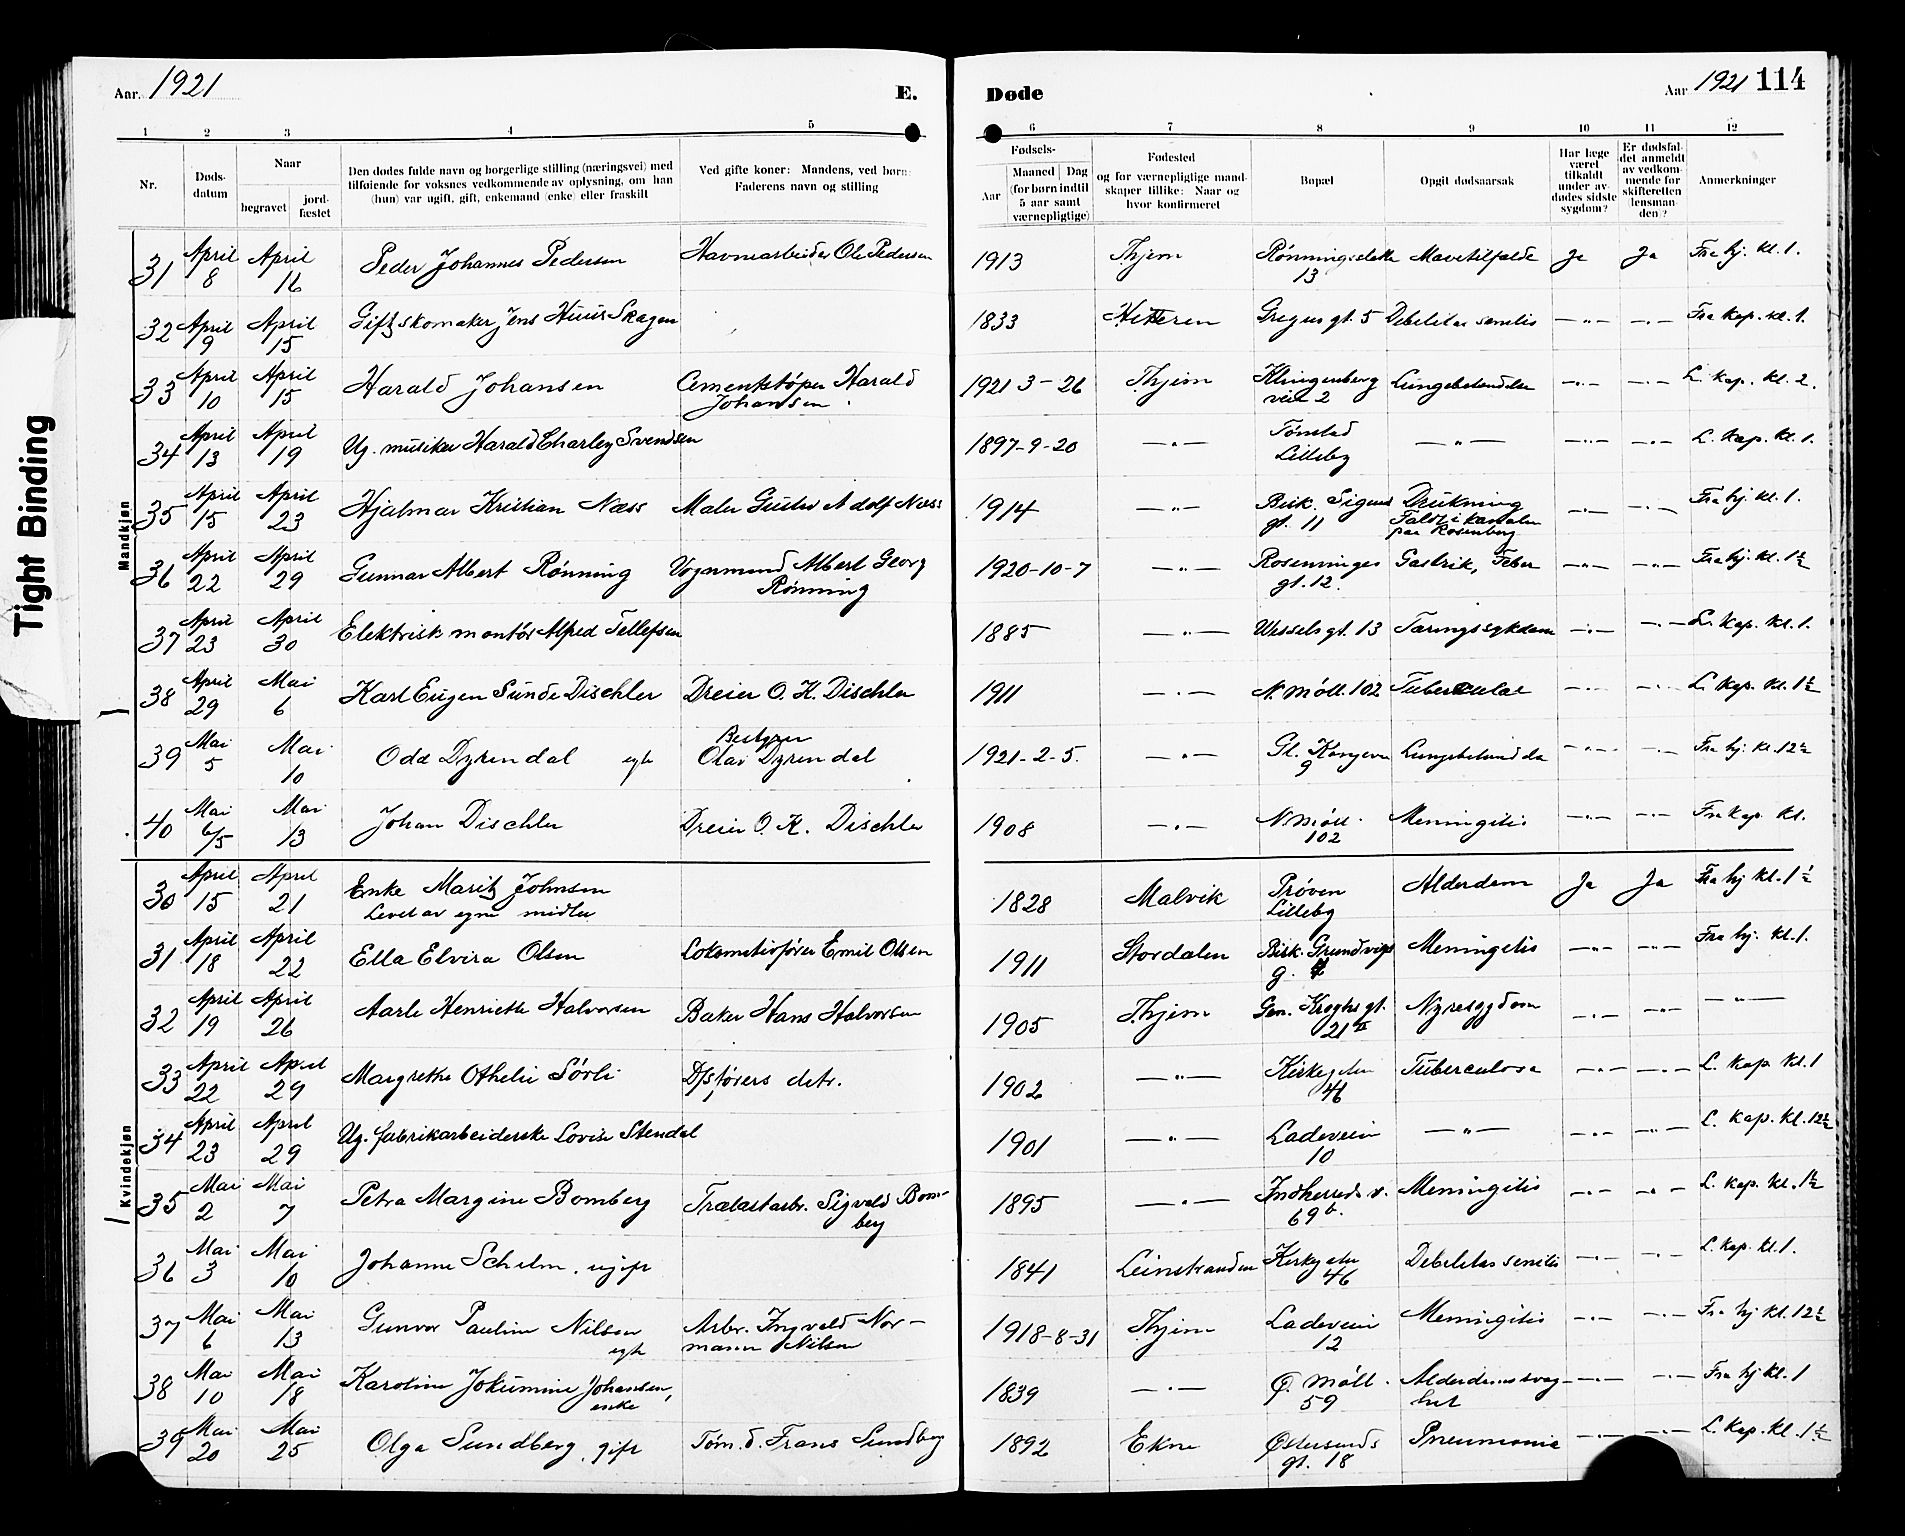 Aar. 1921
E.
Døde
Aar 1921 114
1 2 3 4 5 6 7 8 9 10 11 12
Nr.
Døds-
datum
Naar
begravet
jord-
fæstet
Den dødes fulde navn og borgerlige stilling (næringsvei) med
tilføiende for voksnes vedkommende av oplysning, om han
(hun) var ugift, gift, enkemand (enke) eller fraskilt
Ved gifte koner: Mandens, ved børn:
Faderens navn og stilling
Fødsels-
Aar
Maaned Dag
(for børn indtil
5 aar samt
værnepligtige)
Fødested
og for værnepligtige mand-
skaper tillike: Naar og
hvor konfirmeret
Bopæl
Opgit dødsaarsak
Har læge
været
tilkaldt
under av-
dødes sidste
sygdom?
Er dødsfal-
det anmeldt
av vedkom-
mende for
skifteretten
(lensman-
den)?
Anmerkninger
Tight Binding
Mandkjøn
31 April 8 April 16 Peder Johannes Pedersen Havnearbeider Ole Pedersen 1913 Thjem Rønningsslette 13 Mavetilfælde Ja Ja Fra hj. kl. 1.
32 April 9 April 15 Gift skomaker Jens Huus Skagen 1833 Hitteren Gregus gt. 5 Debilitas senilis —"— —"— Fra kap. kl. 1.
33 April 10 April 15 Harald Johansen Cementstøper Harald Johansen. 1921 3-26 Thjem Klingenberg vei 2 Lungebetændelse —"— —"— L. kap. kl. 2.
34 April 13 April 19 Ug. musiker Harald Charley Svendsen 1897-9-20 —"— Tømstad Lilleby —"— —"— —"— L. kap. kl. 1.
35 April 15 April 23 Hjalmar Kristian Næss Maler Gustav Adolf Næss 1914 —"— Bisk. Sigurds gt. 11 Drukning Faldt i kanalen paa Rosenborg —"— —"— Fra hj. kl. 1.
36 April 22 April 29 Gunnar Albert Rønning Vognmand Albert Georg Rønning 1920-10-7 —"— Rosenvinges gt. 12. Gastrik, Feber —"— —"— Fra hj. kl. 1½
37 April 23 April 30 Elektrisk montør Alfred Tellefsen 1885 —"— Wessels gt. 13 Tæringssykdom —"— —"— L. kap. kl. 1.
38 April 29 Mai 6 Karl Eugen Sunde Dischler Dreier O. K. Dischler 1911 —"— N. Møll. 102 Tuberculae —"— —"— L. kap. kl. 1½
39 Mai 5 Mai 10 Odd Dyrendal egte Bestyrer Olav Dyrendal 1921-2-5. —"— Gl. Kongevei 9 Lungebetændelse —"— —"— Fra hj. kl. 12½
40 Mai 6/5 Mai 13 Johan Dischler Dreier O. K. Dischler 1908 —"— N. Møll. 102 Meningitis —"— —"— Fra kap. kl.
Kvindekjøn
30 April 15 April 21 Enke Marit Johnsen Levet av egne midler 1828 Malvik Prøven Lilleby Alderdom Ja Ja Fra hj kl. 1½
31 April 18 April 22 Ella Elvira Olsen Lokomotivfører Emil Olsen 1911 Stordalen Bisk. Grundvigs g. Meningitis —"— —"— Fra hj. kl. 1.
32 April 19 April 26 Aarle Henriette Halvorsen Baker Hans Halvorsen 1905 Thjem Gen. Kroghs gt. 21 II Nyresygdom —"— —"— —"—
33 April 22 April 29 Margrethe Othelie Sørli D/Sførers datr. 1902 —"— Kirkegaten 46 Tuberculose —"— —"— L. kap kl. 1
34 April 23 April 29 Ug. fabrikarbeiderske Lovise Stendal 1901 —"— Ladeveien 10 —"— —"— —"— L. kap. kl. 12½
35 Mai 2 Mai 7 Petra Margine Bomberg Trælastarbr. Sigvald Bomberg 1895 —"— Indherreds v. 69 b. Meningitis —"— —"— L. kap. kl. 1½
36 Mai 3 Mai 10 Johanne Schelm, ugift 1841 Leinstranden Kirkegaten 46 Debilitas senilis —"— —"— L. kap. kl. 1.
37 Mai 6 Mai 13 Gunvor Pauline Nilsen egte Arbr. Ingvald Normann Nilsen 1918-8-31 Thjem Ladeveien 12 Meningitis —"— —"— Fra hj kl. 12½
38 Mai 10 Mai 18 Karoline Jokumine Johansen, enke 1839 —"— Ø. Møll. 59 Alderdomssvaghet —"— —"— Fra hj kl. 1
39 Mai 20 Mai 25 Olga Sundberg, gift Tøm. d. Frans Sundberg 1892 Ekne Østersunds gt. 18 Pneumonie —"— —"— L. kap. kl. 1½